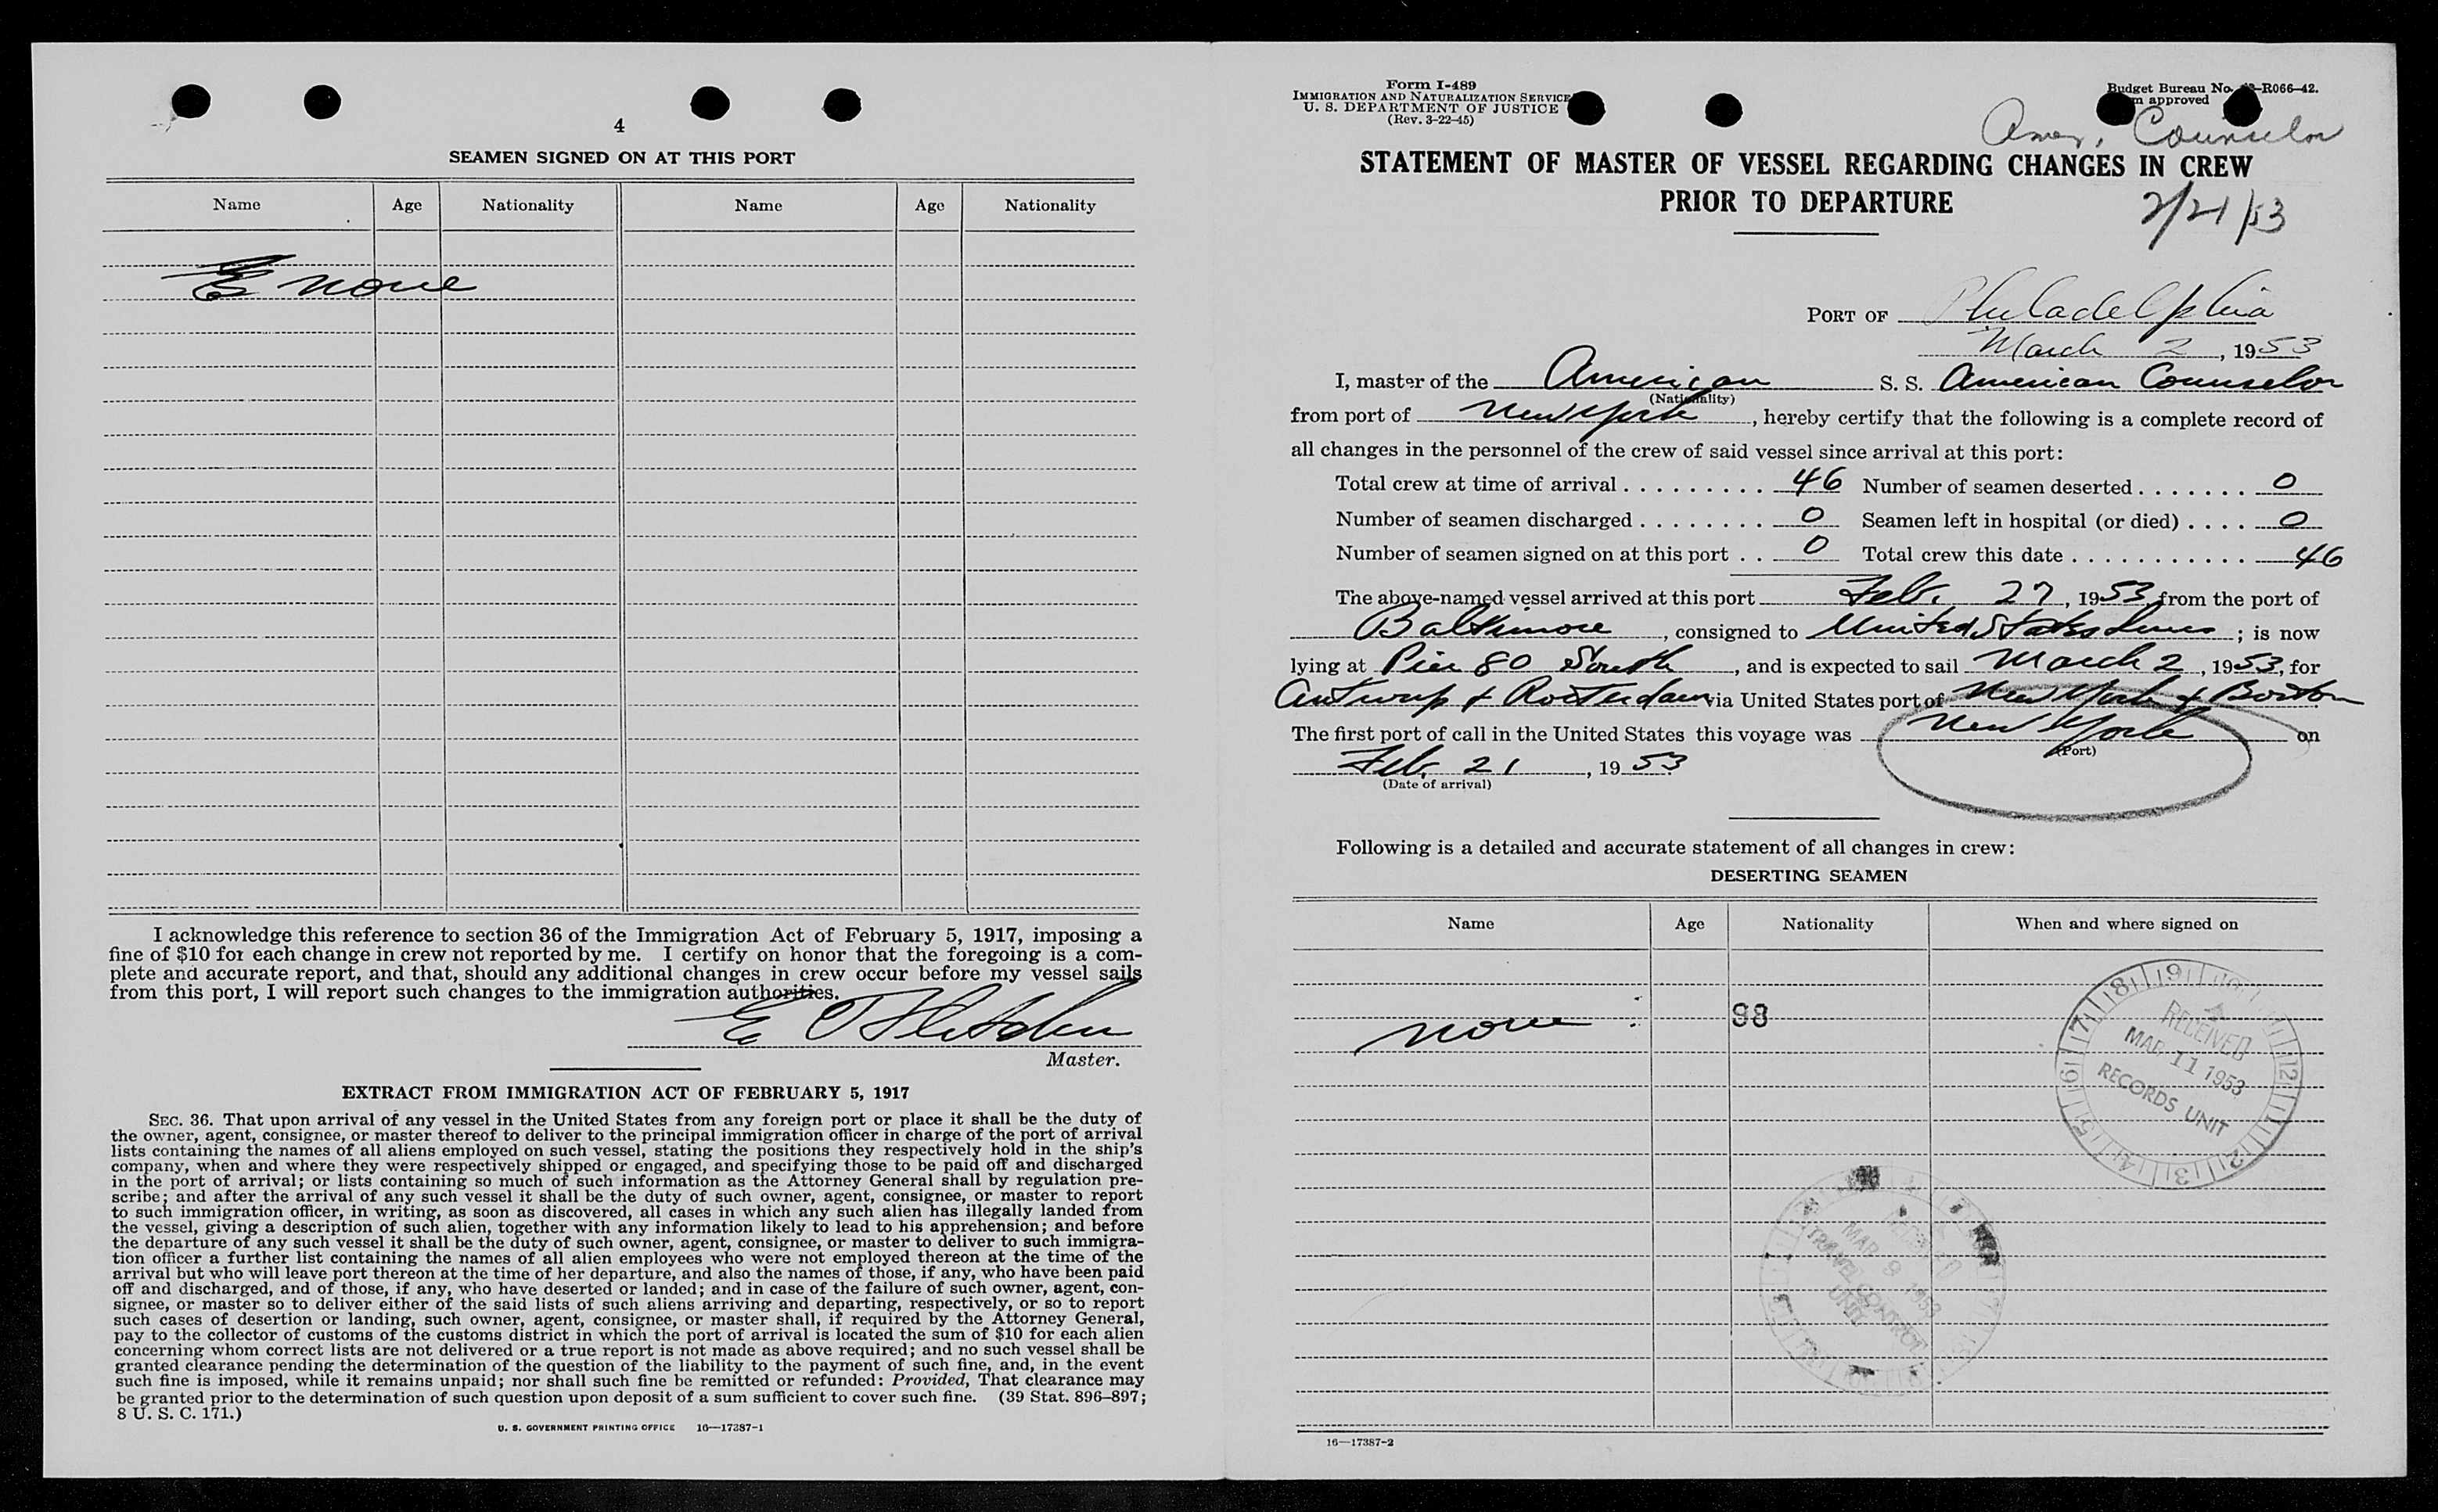 4
SEAMEN SIGNED ON AT THIS PORT
Name Age Nationality Name Age Nationality
none
I acknowledge this reference to section 36 of the Immigration Act of February 5, 1917, imposing a
fine of $10 for each change in crew not reported by me. I certify on honor that the foregoing is a com-
plete and accurate report, and that, should any additional changes in crew occur before my vessel sails
from this port, I will report such changes to the immigration authorities.
Master.
EXTRACT FROM IMMIGRATION ACT OF FEBRUARY 5, 1917
SEC. 36. That upon arrival of any vessel in the United States from any foreign port or place it shall be the duty of
the owner, agent, consignee, or master thereof to deliver to the principal immigration officer in charge of the port of arrival
lists containing the names of all aliens employed on such vessel, stating the positions they respectively hold in the ship's
company, when and where they were respectively shipped or engaged, and specifying those to be paid off and discharged
in the port of arrival; or lists containing so much of such information as the Attorney General shall by regulation pre-
scribe; and after the arrival of any such vessel it shall be the duty of such owner, agent, consignee, or master to report
to such immigration officer, in writing, as soon as discovered, all cases in which any such alien has illegally landed from
the vessel, giving a description of such alien, together with any information likely to lead to his apprehension; and before
the departure of any such vessel it shall be the duty of such owner, agent, consignee, or master to deliver to such immigra-
tion officer a further list containing the names of all alien employees who were not employed thereon at the time of the
arrival but who will leave port thereon at the time of her departure, and also the names of those, if any, who have been paid
off and discharged, and of those, if any, who have deserted or landed; and in case of the failure of such owner, agent, con-
signee, or master so to deliver either of the said lists of such aliens arriving and departing, respectively, or so to report
such cases of desertion or landing, such owner, agent, consignee, or master shall, if required by the Attorney General,
pay to the collector of customs of the customs district in which the port of arrival is located the sum of $10 for each alien
concerning whom correct lists are not delivered or a true report is not made as above required; and no such vessel shall be
granted clearance pending the determination of the question of the liability to the payment of such fine, and, in the event
such fine is imposed, while it remains unpaid; nor shall such fine be remitted or refunded: Provided, That clearance may
be granted prior to the determination of such question upon deposit of a sum sufficient to cover such fine. (39 Stat. 896–897;
8 U. S. C. 171.)
U. S. GOVERNMENT PRINTING OFFICE 16—17387-1
Form I-489
IMMIGRATION AND NATURALIZATION SERVICE
U. S. DEPARTMENT OF JUSTICE
(Rev. 3-22-45)
Budget Bureau No. -R066-42.
approved
Amer. Counselor
STATEMENT OF MASTER OF VESSEL REGARDING CHANGES IN CREW
PRIOR TO DEPARTURE
2/21/53
PORT OF Philadelphia
March 2, 1953
I, master of the American S. S. American Counselor
(Nationality)
from port of New York, hereby certify that the following is a complete record of
all changes in the personnel of the crew of said vessel since arrival at this port:
Total crew at time of arrival 46 Number of seamen deserted 0
Number of seamen discharged 0 Seamen left in hospital (or died) 0
Number of seamen signed on at this port 0 Total crew this date 46
The above-named vessel arrived at this port Feb. 27, 1953 from the port of
Baltimore, consigned to United States Lines; is now
lying at Pier 80 South, and is expected to sail March 2, 1953, for
Antwerp + Rotterdam via United States port of New York & Boston
The first port of call in the United States this voyage was New York on
(Port)
Feb. 21, 1953
(Date of arrival)
Following is a detailed and accurate statement of all changes in crew:
DESERTING SEAMEN
Name Age Nationality When and where signed on
none 98
RECEIVED
MAR 11 1953
RECORDS UNIT
RECEIVED
MAR 9 1953
TRAVEL CONTROL
UNIT
16—17387-2